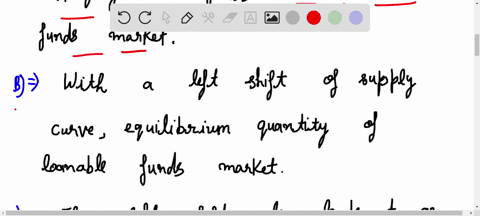 funds market.
B)⇒ With a left shift of supply
curve, equilibrium quantity of
loanable funds market.